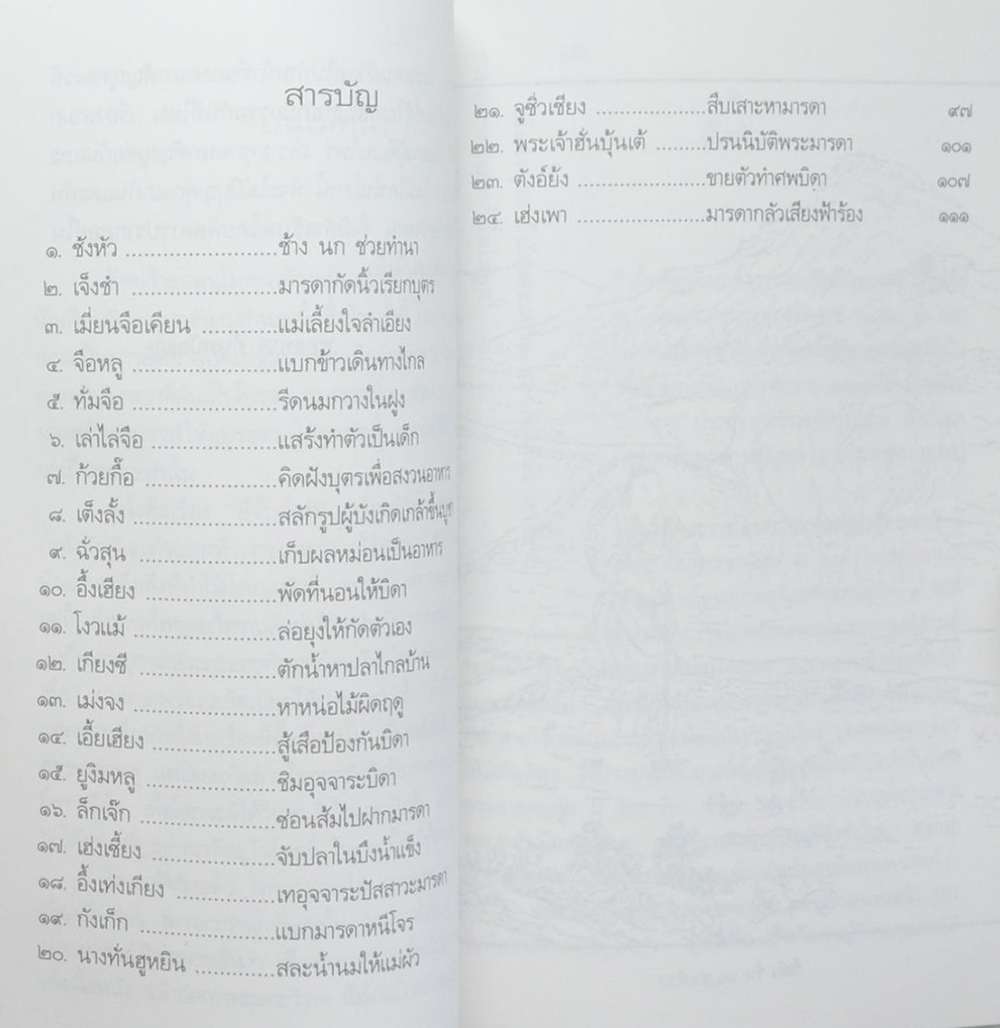 สารบัญ
๑. ซังหัว ..........................ช้าง นก ช่วยทำนา
๒. เจ็งชำ .........................มารดากัดนิ้วเรียกบุตร
๓. เมี่ยนจือเคียน .............แม่เลี้ยงใจลำเอียง
๔. จือหลู .........................แบกข้าวเดินทางไกล
๕. ทั่มจือ .........................รีดนมกวางในฝูง
๖. เล่าไล่จือ ......................แสร้งทำตัวเป็นเด็ก
๗. ก้วยกื๊อ ........................คิดฝังบุตรเพื่อสงวนอาหาร
๘. เต็งลั้ง .........................สลักรูปผู้บังเกิดเกล้าขึ้นบูชา
๙. ฉั่วสุน ..........................เก็บผลหม่อนเป็นอาหาร
๑๐. อึ้งเฮียง ......................พัดที่นอนให้บิดา
๑๑. โงวแม้ ........................ล่อยุงให้กัดตัวเอง
๑๒. เกียงซี .......................ตักน้ำหาปลาไกลบ้าน
๑๓. เม่งจง ........................หาหน่อไม้ผิดฤดู
๑๔. เอี้ยเฮียง .....................สู้เสือป้องกันบิดา
๑๕. ยูงิมหลู ......................ชิมอุจจาระบิดา
๑๖. ล็กเจ๊ก .......................ซ่อนส้มไปฝากมารดา
๑๗. เฮ่งเซี้ยง .....................จับปลาในบึงน้ำแข็ง
๑๘. อึ้งเท่งเกียง .................เทอุจจาระปัสสาวะมารดา
๑๙. กังเก็ก .......................แบกมารดาหนีโจร
๒๐. นางทั่นฮูหยิน .............สละน้ำนมให้แม่ผัว
๒๑. จูซิ่วเซียง ...................สืบเสาะหามารดา ๙๗
๒๒. พระเจ้าฮั่นบุ้นเต้ .........ปรนนิบัติพระมารดา ๑๐๑
๒๓. ตังอ์ย้ง ......................ขายตัวทำศพบิดา ๑๐๗
๒๔. เฮ่งเพา ......................มารดากลัวเสียงฟ้าร้อง ๑๑๑